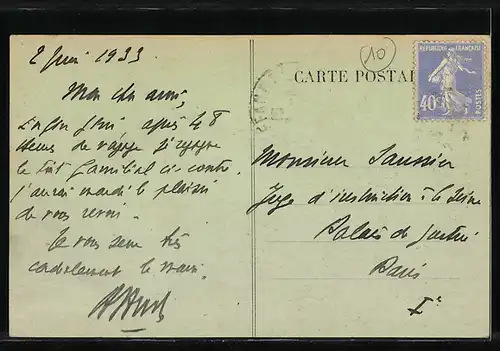 2 Juin 1933
Mon cher ami,
Enfin après 48
heures de voyage
le toit familial ci-contre.
J'aurai le plaisir
de vous revoir.
Je vous serre très
cordialement la main.
10
CARTE POSTALE
RÉPUBLIQUE FRANÇAISE
40c
POSTES
Monsieur Saussier
Juge d'instruction à la Seine
Palais de Justice
Paris
Ie